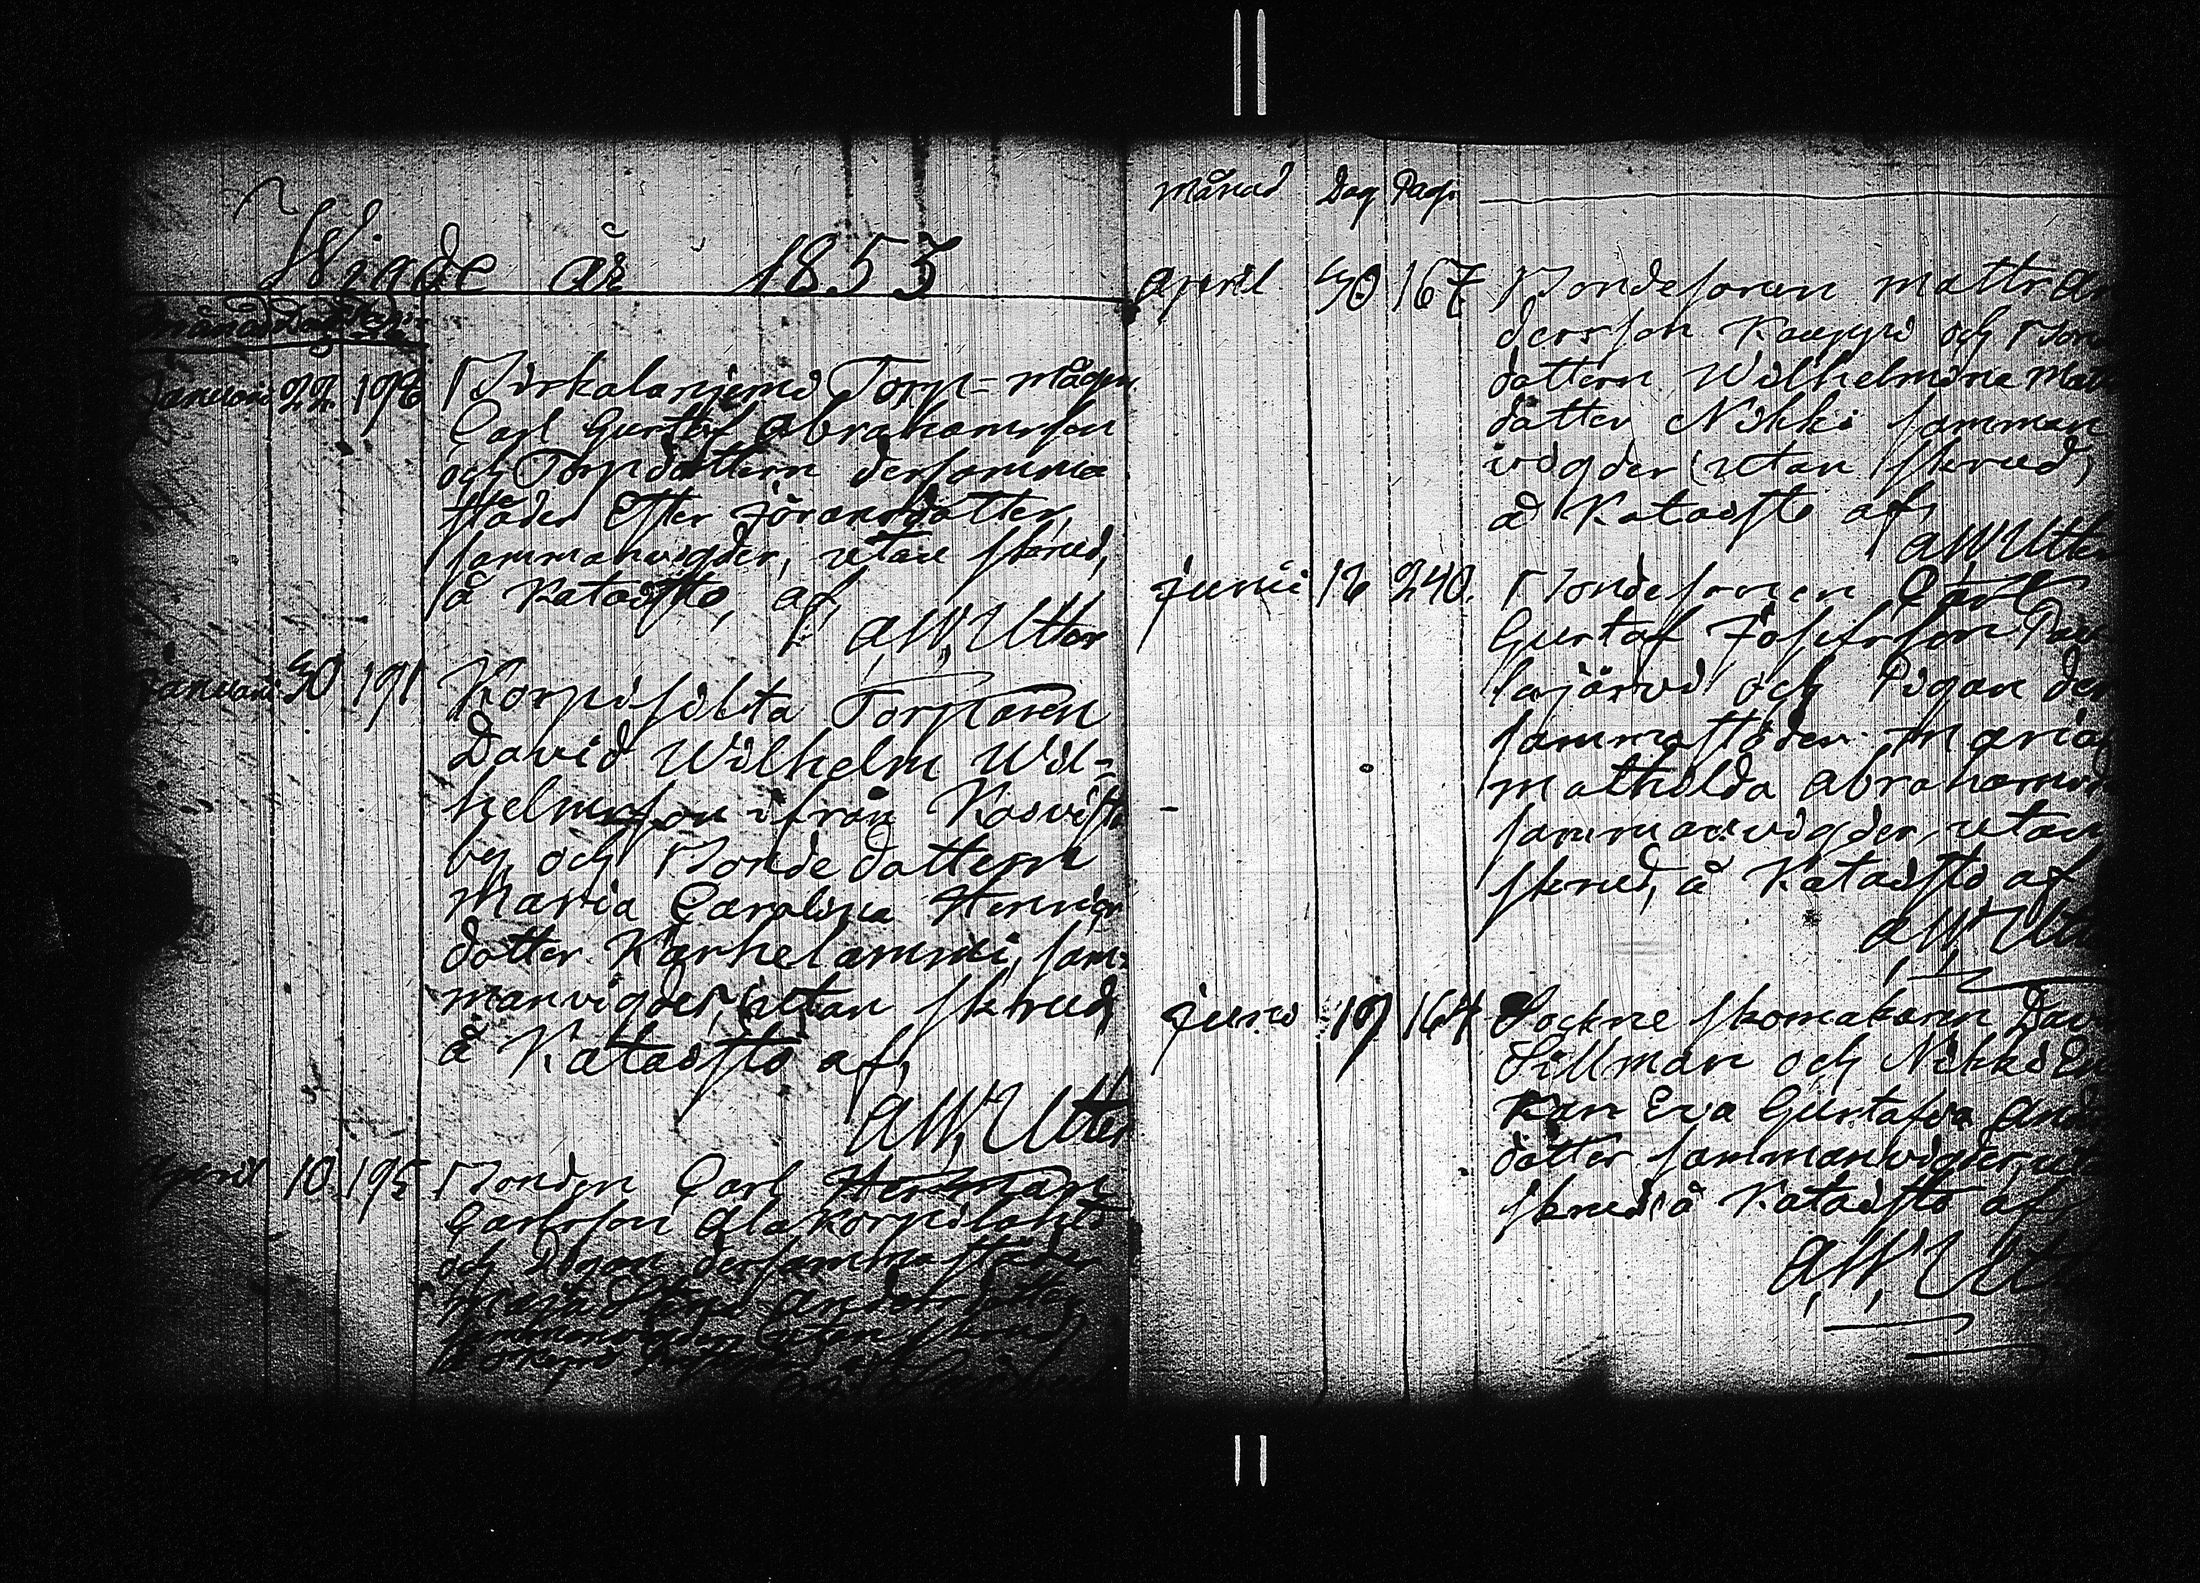 Wigde år 1853
Månad Dag
Januari 22 196 Birkalaniemi Torp-mågen
Carl Gustaf Abrahamsson
och Torpdottern dersamma
städes Ester Jöransdotter,
sammanvigder, utan skrud,
å Kataisto, af
A.W. Utter
Januari 30 191 Korpisilta Torparen
David Wilhelm Wil-
helmsson ifrån Koivisto
by och Bondedottern
Maria Carolina Henrics
dotter Karhelammi, sam-
manvigder, utan skrud,
å Kataisto af,
A.W. Utter
April 10 195 Bonden Carl Herman
Carlsson Alakorpilahti
och Pigan dersammastädes
Maja Stina Andersdotter
sammanvigder (utan skrud)
Månad Dag Pag.
April 30 167 Bondesonen Matts An
dersson Kauppi och Bon
dottern Wilhelmina Matts
dotter Nikki samman
vigder (utan skrud)
å Kataisto af,
A W Utter
Junii 16 240. Bondesonen Carl
Gustaf Josefsson Pau
lajärvi och Pigan der
sammastädes Maria
Mathilda Abrahamsd
sammanvigder, utan
skrud, å Kataisto af
A.W. Utter
Juni 19 164 Sockne skomakaren Davi
Sillman och Nikki En
kan Eva Gustafva And
dotter sammanvigder, uta
skrud, å Kataisto af
A.W. Utt